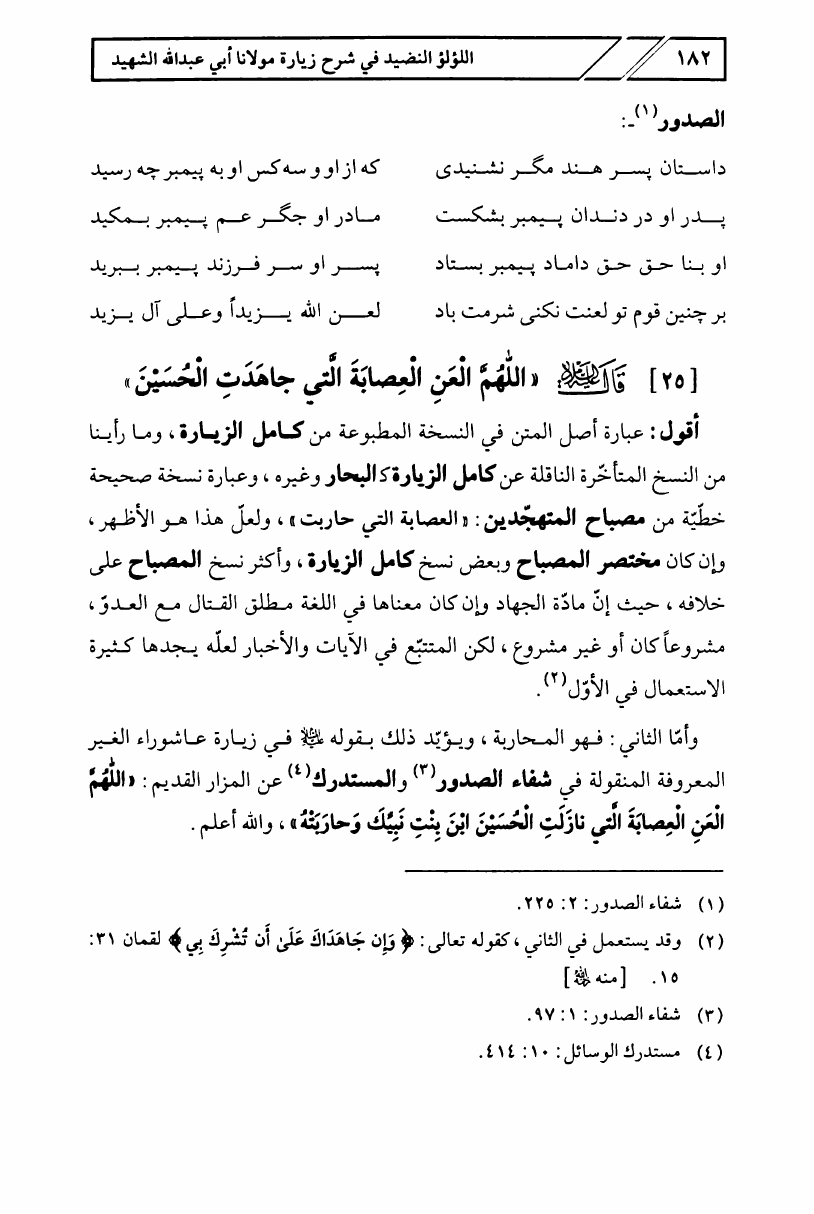 ١٨٢ اللؤلؤ النضيد في شرح زيارة مولانا أبي عبدالله الشهيد
الصدور(١)ـ:
داستان پسر هند مگر نشنیدی که از او و سه کس او به پیمبر چه رسید
پدر او در دندان پیمبر بشکست مادر او جگر عم پیمبر بمکید
او بنا حق حق داماد پیمبر بستاد پسر او سر فرزند پیمبر ببرید
بر چنین قوم تو لعنت نکنی شرمت باد لعن الله يزيداً وعلى آل يزيد
[٢٥] قال عليه السلام «اللّٰهُمَّ الْعَنِ الْعِصابَةَ الَّتي جاهَدَتِ الْحُسَيْنَ»
أقول: عبارة أصل المتن في النسخة المطبوعة من كامل الزيارة، وما رأينا
من النسخ المتأخّرة الناقلة عن كامل الزيارة كالبحار وغيره، وعبارة نسخة صحيحة
خطّيّة من مصباح المتهجّدين: «العصابة التي حاربت»، ولعلّ هذا هو الأظهر،
وإن كان مختصر المصباح وبعض نسخ كامل الزيارة، وأكثر نسخ المصباح على
خلافه، حيث إنّ مادّة الجهاد وإن كان معناها في اللغة مطلق القتال مع العدوّ،
مشروعاً كان أو غير مشروع، لكن المتتبّع في الآيات والأخبار لعلّه يجدها كثيرة
الاستعمال في الأوّل(٢).
وأمّا الثاني: فهو المحاربة، ويؤيّد ذلك بقوله ﵇ في زيارة عاشوراء الغير
المعروفة المنقولة في شفاء الصدور(٣) والمستدرك(٤) عن المزار القديم: «اللّٰهُمَّ
الْعَنِ الْعِصابَةَ الَّتي نازَلَتِ الْحُسَيْنَ ابْنَ بِنْتِ نَبِيِّكَ وَحارَبَتْهُ»، والله أعلم.
(١) شفاء الصدور: ٢: ٢٢٥.
(٢) وقد يستعمل في الثاني، كقوله تعالى: ﴿وَإِن جَاهَدَاكَ عَلَىٰ أَن تُشْرِكَ بِي﴾ لقمان ٣١:
١٥. [منه ﵀]
(٣) شفاء الصدور: ١: ٩٧.
(٤) مستدرك الوسائل: ١٠: ٤١٤.